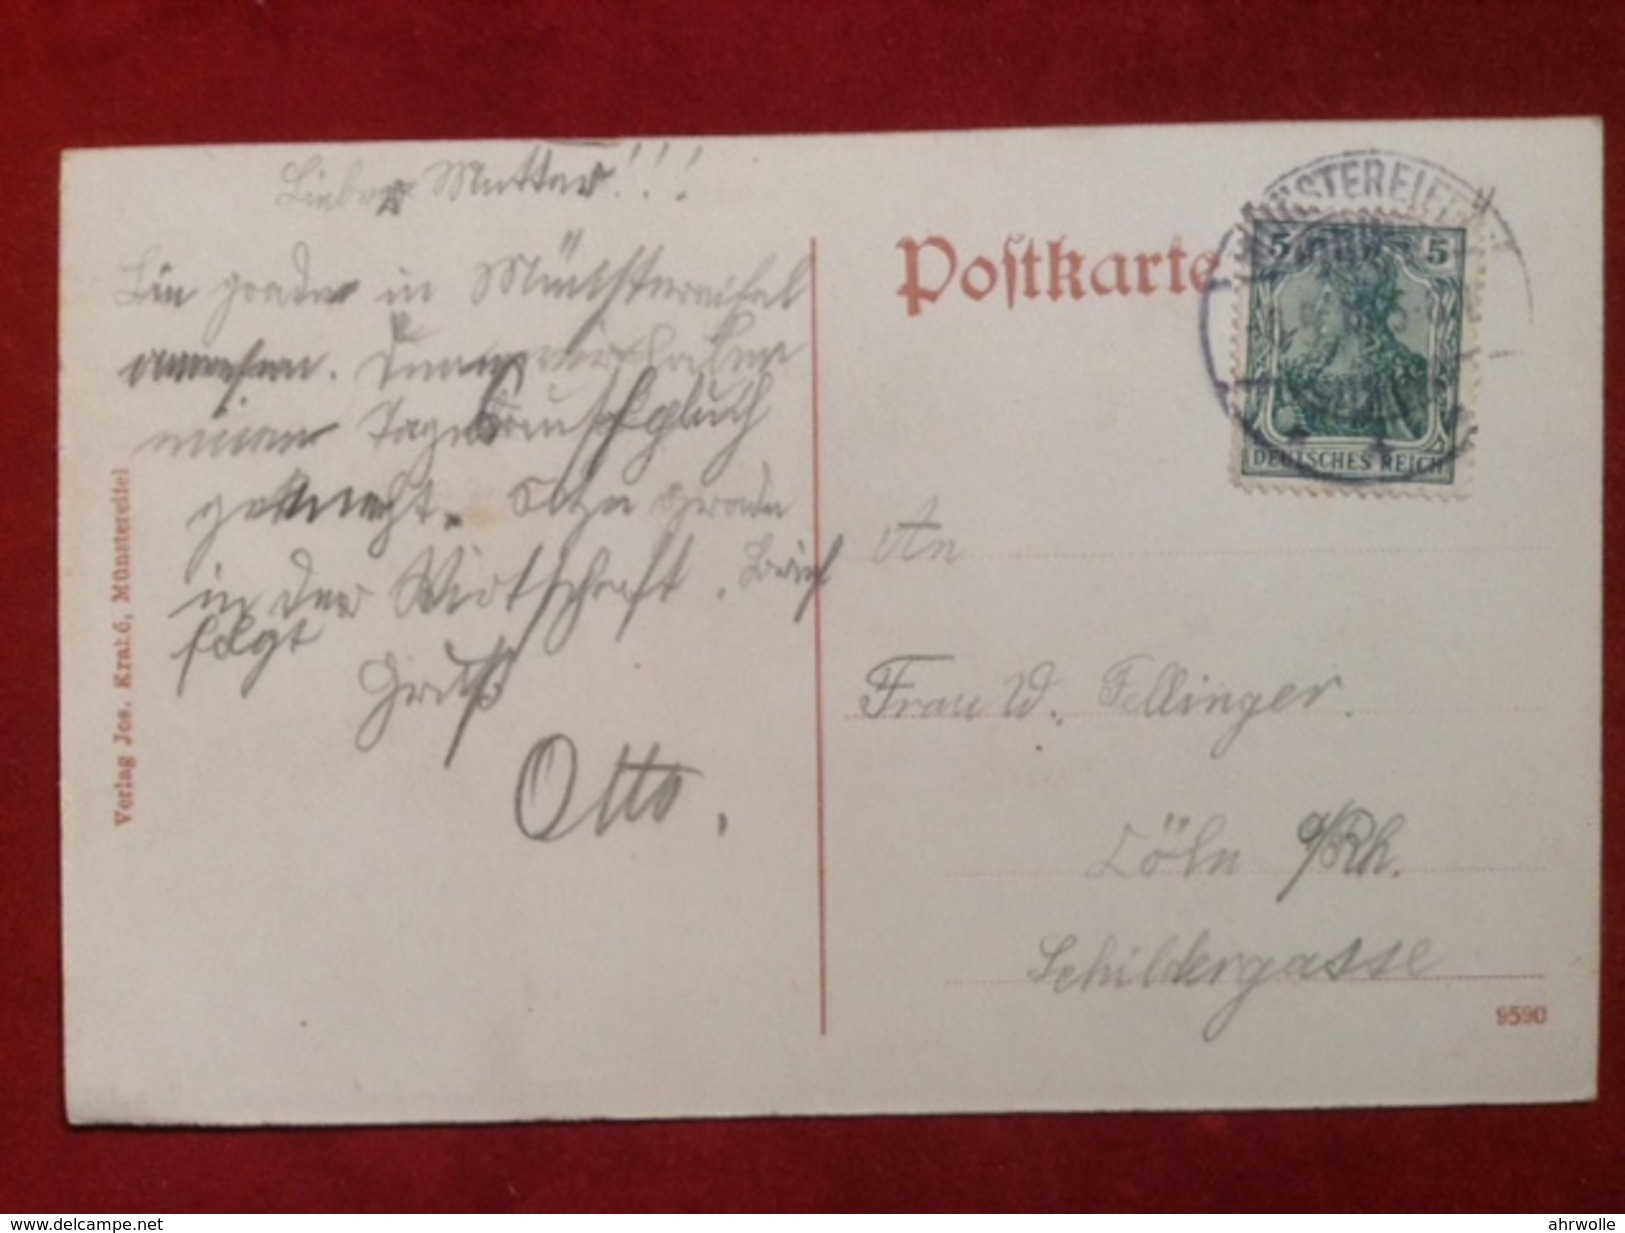 Liebe Mutter!!!
Bin grade in Münstereifel
anwesen. Denn wir haben
einen Tages
gemacht. Sitze grade
in der Wirtschaft. Brief
folgt
Gruß
Otto.
Verlag Jos. Krahé, Münstereifel
Postkarte
MÜNSTEREIFEL
5 5
DEUTSCHES REICH
An
Frau W. Fellinger.
Cöln a/Rh.
Schildergasse
9590
www.delcampe.net
ahrwolle